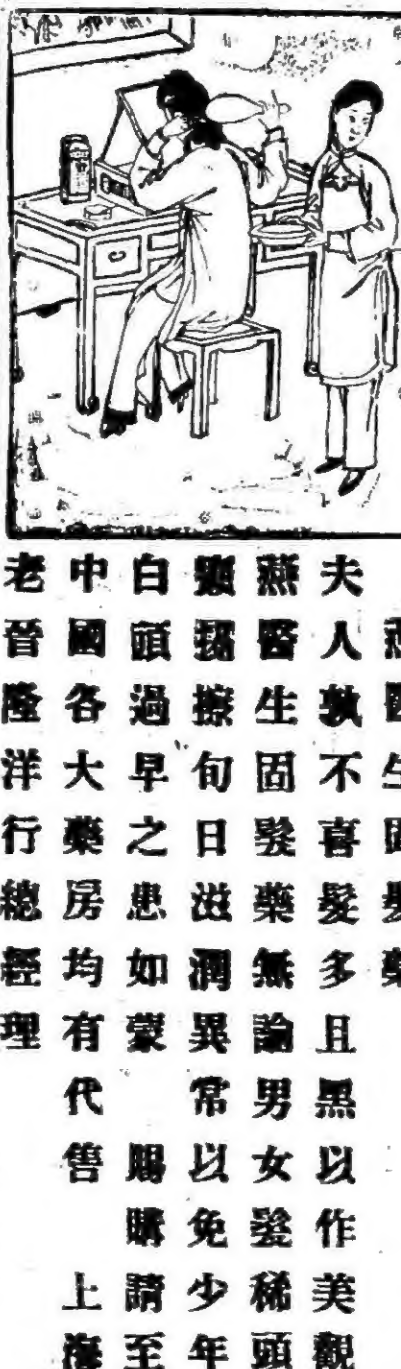 燕醫生固髮藥
夫人孰不喜髮多且黑以作美觀
燕醫生固髮藥無論男女髮稀頭
擦旬日滋潤異常以免少年
白頭過早之患如蒙 賜購請至
中國各大藥房均有代售 上海
老晉隆洋行總經理